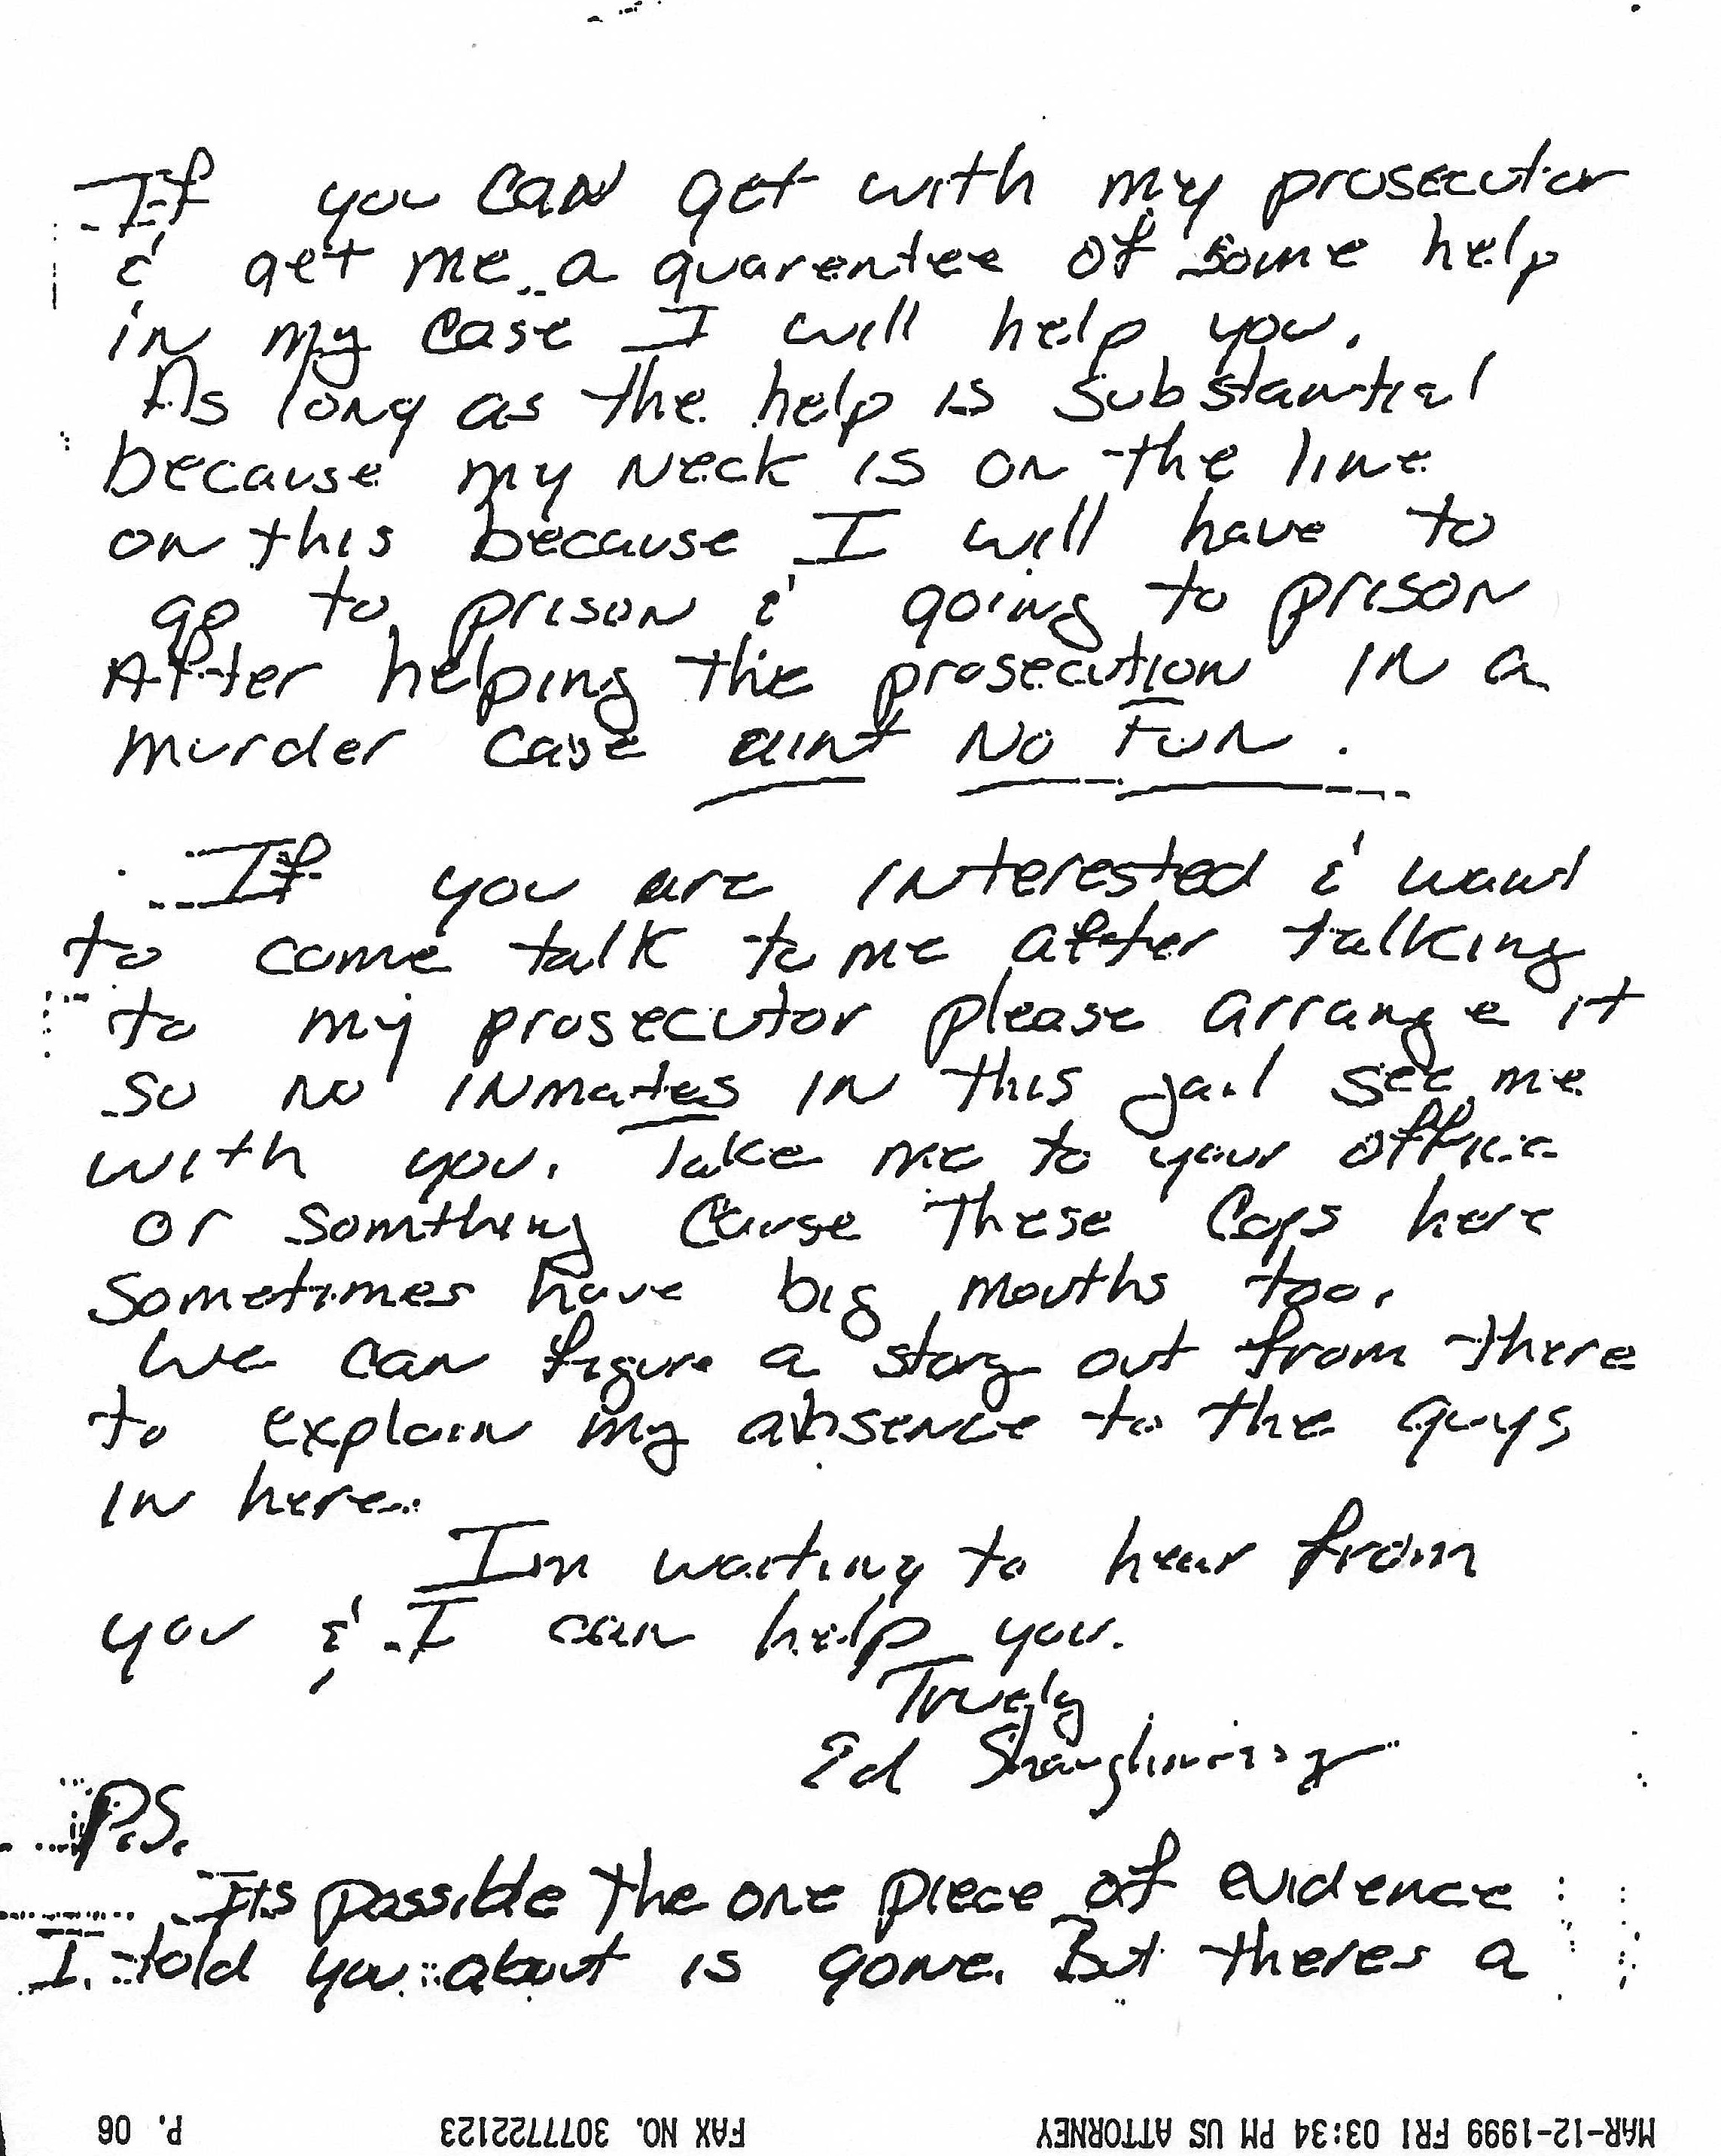 If you can get with my prosecutor
& get me a quarentee of some help
in my case I will help you.
As long as the help is substantial
because my neck is on the line
on this because I will have to
go to prison & going to prison
After helping the prosecution in a
murder case aint no Fun.
If you are interested & want
to come talk to me after talking
to my prosecutor please arrange it
so no inmates in this jail see me
with you. Take me to your office
or somthing Cause These Cops here
sometimes have big mouths too.
We can figure a story out from there
to explain my absence to the guys
in here.
Im waiting to hear from
you & I can help you.
Truely
Ed Shaughnessy
P.S.
Its possible the one piece of evidence
I told you about is gone. But theres a
MAR-12-1999 FRI 03:34 PM US ATTORNEY FAX NO. 3077722123 P. 06